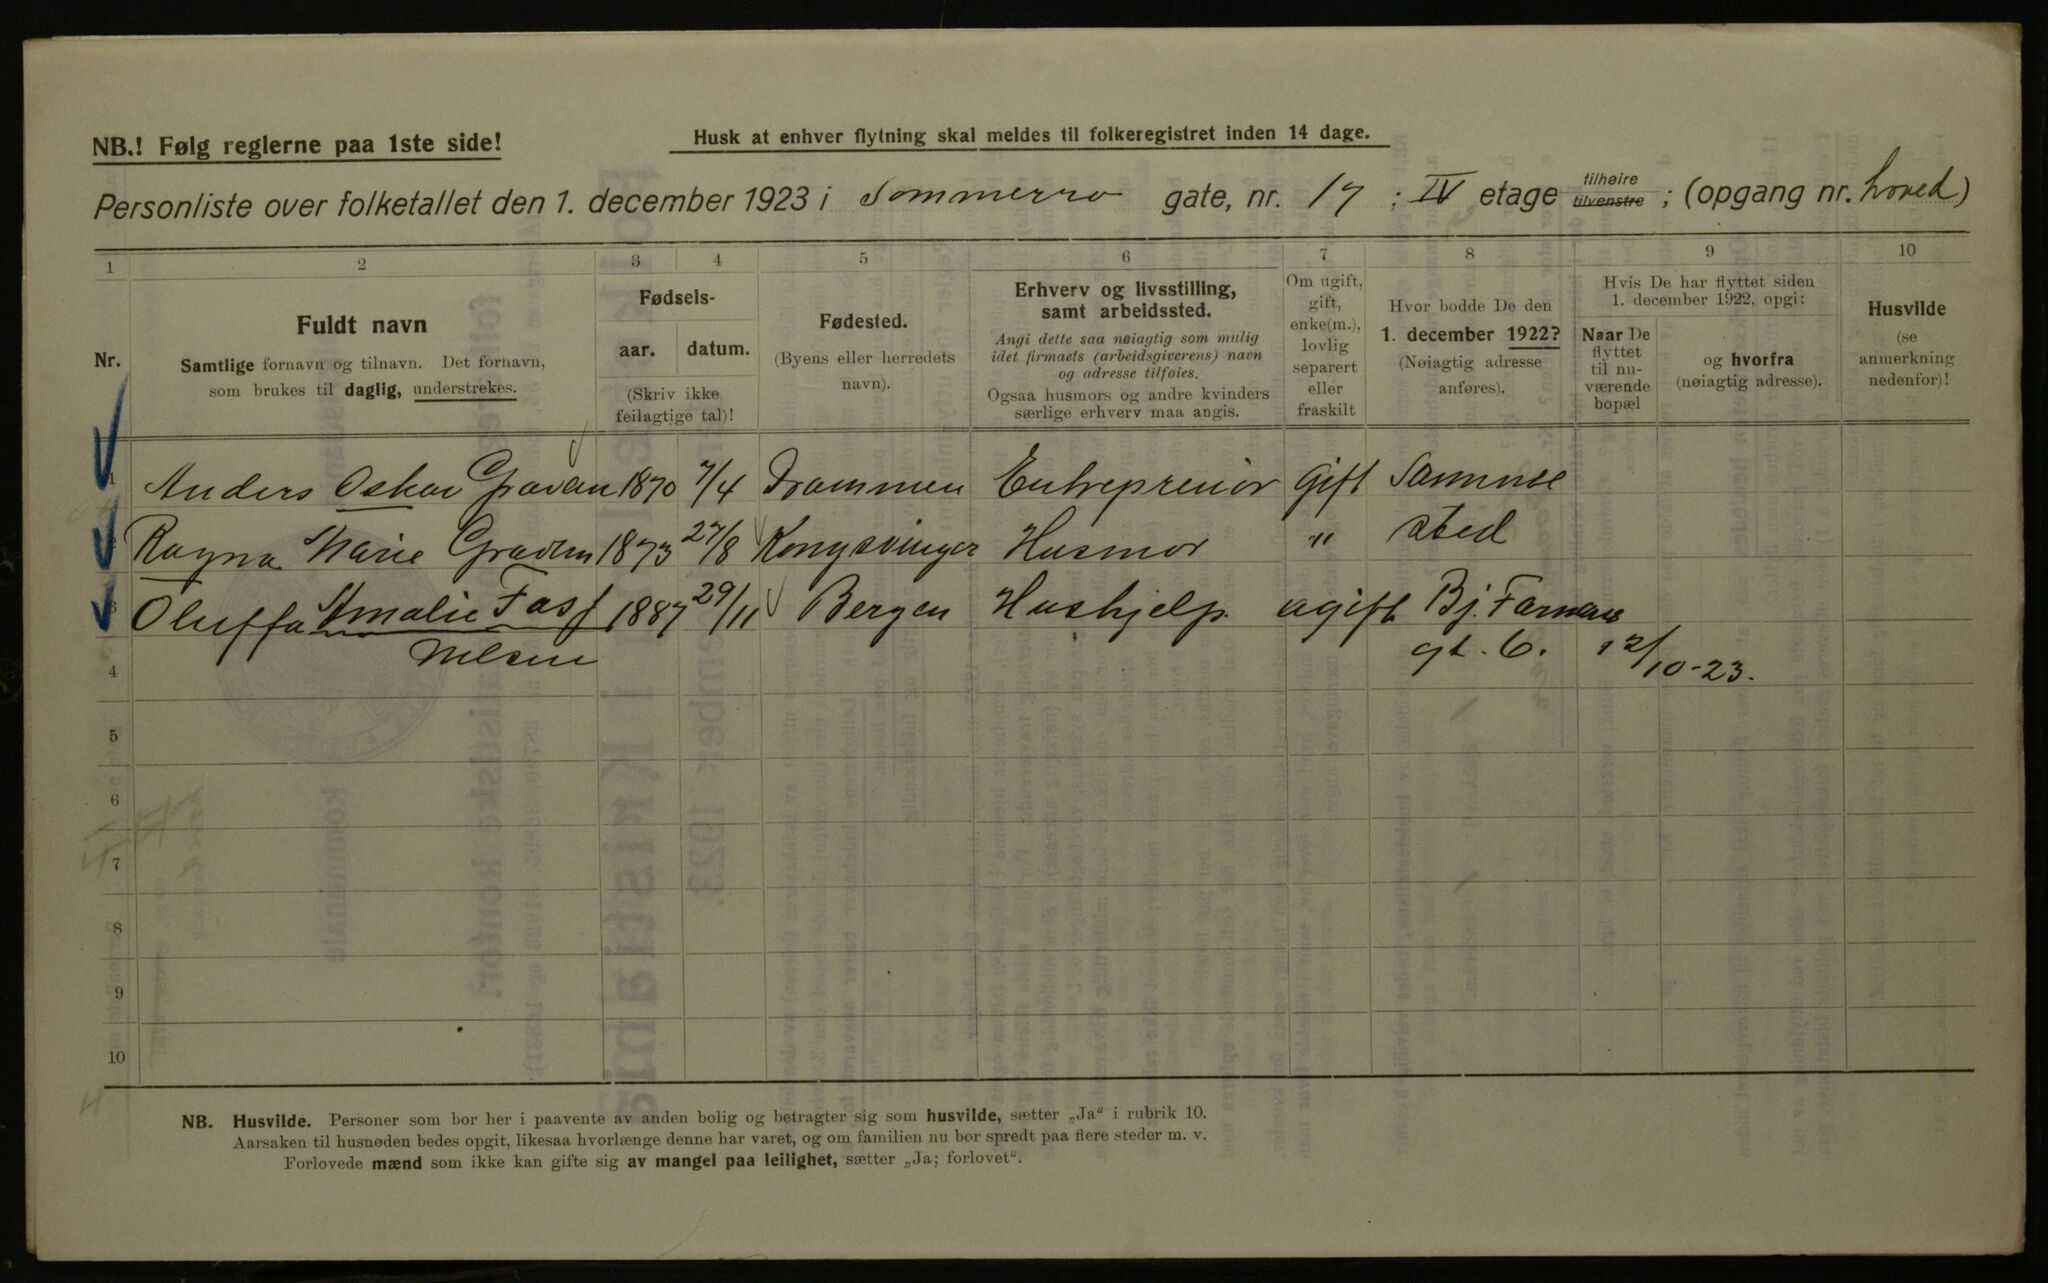 NB.! Følg reglerne paa 1ste side!
Husk at enhver flytning skal meldes til folkeregistret inden 14 dage.
Personliste over folketallet den 1. december 1923 i Sommerro gate, nr. 17 ; IV etage tilhøire tilvenstre ; (opgang nr. hoved)
1 2 3 4 5 6 7 8 9 10
Nr.
Fuldt navn
Samtlige fornavn og tilnavn. Det fornavn,
som brukes til daglig, understrekes.
Fødsels-
aar. datum.
(Skriv ikke
feilagtige tal)!
Fødested.
(Byens eller herredets
navn).
Erhverv og livsstilling,
samt arbeidssted.
Angi dette saa nøiagtig som mulig
idet firmaets (arbeidsgiverens) navn
og adresse tilføies.
Ogsaa husmors og andre kvinders
særlige erhverv maa angis.
Om ugift,
gift,
enke(m.),
lovlig
separert
eller
fraskilt
Hvor bodde De den
1. december 1922?
(Nøiagtig adresse
anføres).
Hvis De har flyttet siden
1. december 1922, opgi:
Naar De
flyttet
til nu-
værende
bopæl
og hvorfra
(nøiagtig adresse).
Husvilde
(se
anmerkning
nedenfor)!
1 Anders Oskar Graven 1870 7/4 Drammen Entreprenør gift Samme
2 Ragna Marie Graven 1873 27/8 Kongsvinger Husmor " sted
3 Oluffa Amalie Fass 1887 29/11 Bergen Hushjelp. ugift Bj. Farmans
4 Nilsen gt. 6. 12/10-23.
5
6
7
8
9
10
NB. Husvilde. Personer som bor her i paavente av anden bolig og betragter sig som husvilde, sætter „Ja“ i rubrik 10.
Aarsaken til husnøden bedes opgit, likesaa hvorlænge denne har varet, og om familien nu bor spredt paa flere steder m. v.
Forlovede mænd som ikke kan gifte sig av mangel paa leilighet, sætter „Ja; forlovet“.